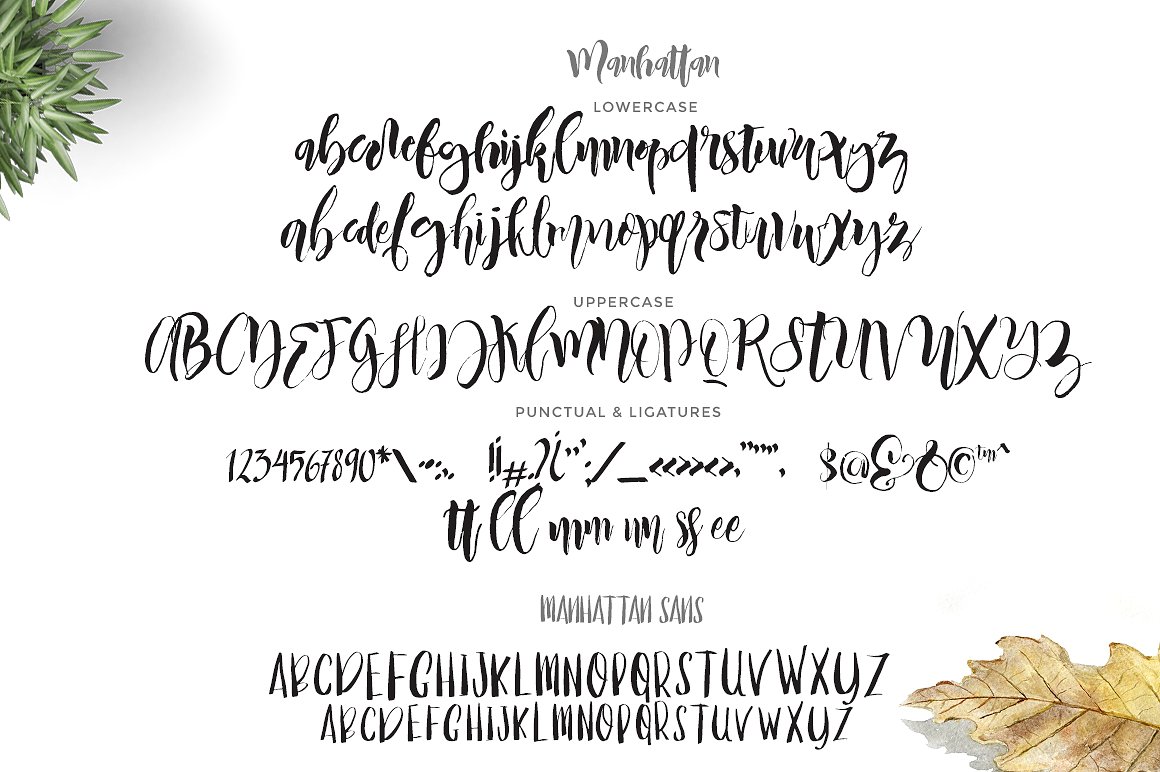 Manhattan
LOWERCASE
abcdefghijklmnopqrstuvwxyz
abcdefghijklmnopqrstuvwxyz
UPPERCASE
ABCDEFGHIJKLMNOPQRSTUVWXYZ
PUNCTUAL & LIGATURES
1234567890
tt ll mm nn ss ee
MANHATTAN SANS
ABCDEFGHIJKLMNOPQRSTUVWXYZ
ABCDEFGHIJKLMNOPQRSTUVWXYZ